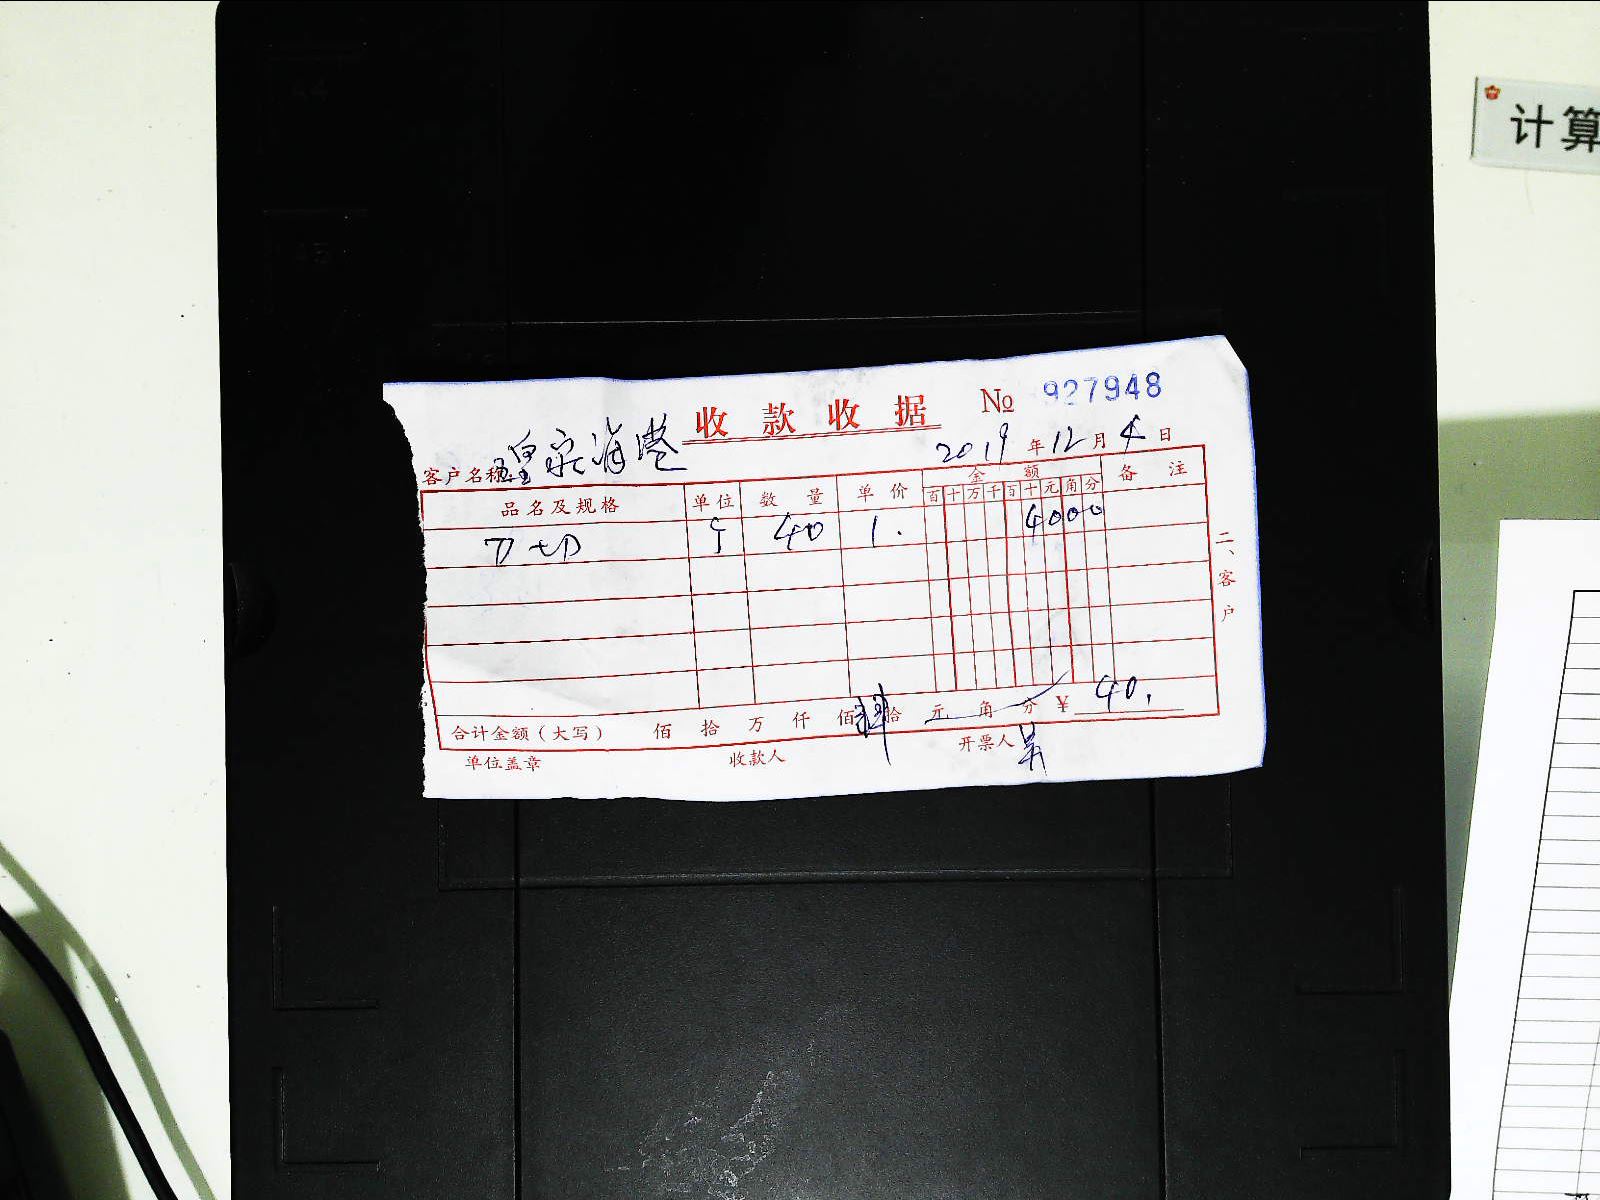 计算
收款收据 № 927948
2019年12月4日
客户名称 皇家海港
品名及规格 单位 数量 单价 金额 备注
百十万千百十元角分
40 1. 4000
二、客户
合计金额（大写） 佰 拾 万 仟 佰 肆拾 元 角 分 ￥ 40.
单位盖章 收款人 开票人 吴